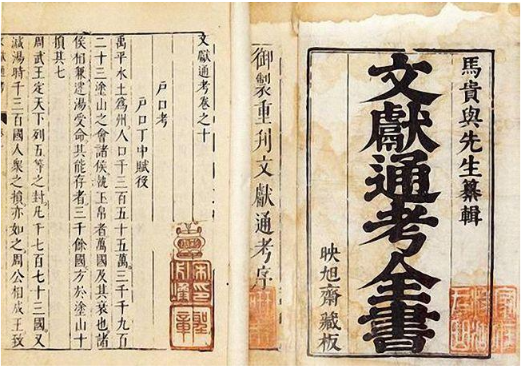 馬貴與先生纂輯
文獻通考全書
映旭齋藏板
御製重刋文獻通考序
文獻通考卷之十
戶口考
戶口丁中賦役
禹平水土爲九州人口千三百五十五萬三千九百
二十三塗山之會諸侯執玉帛者萬國及其衰也諸
侯相兼逮湯受命其能存者三千餘國方於塗山十
損其七
周武王定天下列五等之封凡千七百七十三國又
減湯時千三百國人衆之損亦如之周公相成王致